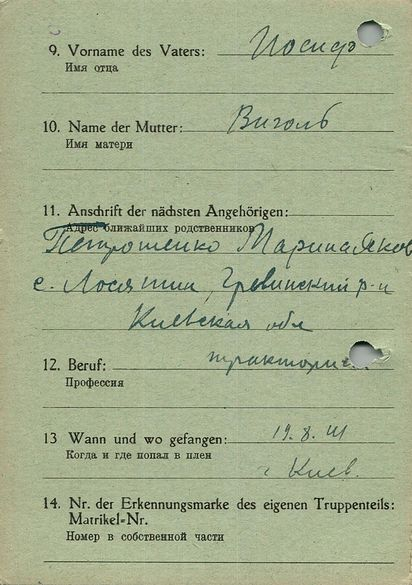 9. Vorname des Vaters: Иосиф
Имя отца
10. Name der Mutter: Виголь
Имя матери
11. Anschrift der nächsten Angehörigen:
Адрес ближайших родственников
Петрошенко Марина Яков
с. Лосятин, Гревинский р-н
Киевская обл
12. Beruf: тракторис
Профессия
13 Wann und wo gefangen: 19. 8. 41
Когда и где попал в плен
г Киев.
14. Nr. der Erkennungsmarke des eigenen Truppenteils:
Matrikel-Nr.
Номер в собственной части